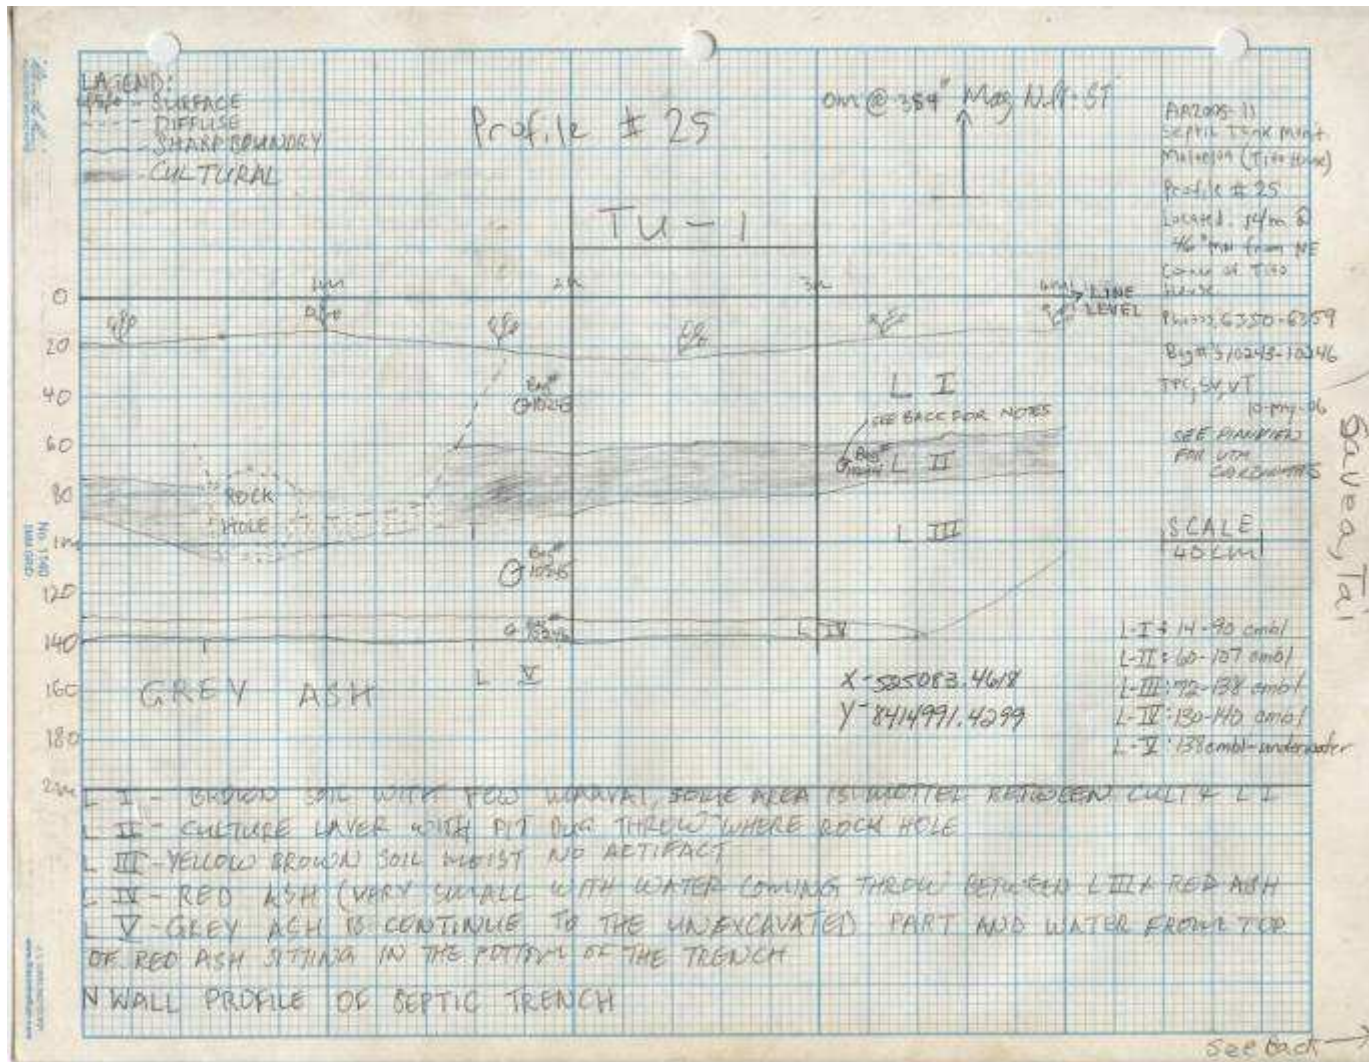 LAGEND:
- SURFACE
- DIFFUSE
- SHARP BOUNDRY
- CULTURAL
Profile # 25
Mag
TU-1
1m
2m
3m
4m
LINE
LEVEL
Septic Tank
Profile # 25
Located
House
Photos 6350-6359
Bag #'s 10243-10246
TPC, SV, VT
10-may-06
SEE PLANVIEW
FOR UTM
COORDINATES
SCALE
40 cm
0
20
40
60
80
1m
120
140
160
180
2m
L I
SEE BACK FOR NOTES
Bag#
Bag#
L II
ROCK
HOLE
L III
Bag#
L IV
L V
GREY ASH
X-525083.4618
Y-8414991.4299
L-I: 14-90 cmbl
L-II: 60-107 cmbl
L-III: 72-138 cmbl
L-IV: 130-140 cmbl
L-V: 138 cmbl-underwater
L I - BROWN SOIL WITH FEW SOME AREA IS MOTTEL BETWEEN CULT & L I
L II - CULTURE LAYER WITH PIT DUG THROW WHERE ROCK HOLE
L III - YELLOW BROWN SOIL MOIST NO ACTIFACT
L IV - RED ASH (VERY SMALL WITH WATER COMING THROW BETWEEN L III & RED ASH
L V - GREY ASH IS CONTINUE TO THE UNEXCAVATED PART AND WATER FROM TOP
OF RED ASH SITTING IN THE BOTTOM OF THE TRENCH
N WALL PROFILE OF SEPTIC TRENCH
See Back